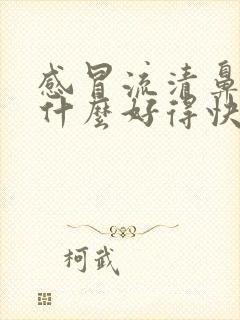 感冒流清鼻
什麼好得快
柯武